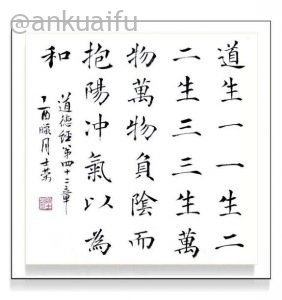 @ankuaifu
道生一一生二
二生三三生萬
物萬物負陰而
抱陽冲氣以為
和
道德經第四十二章
丁酉臘月士荣